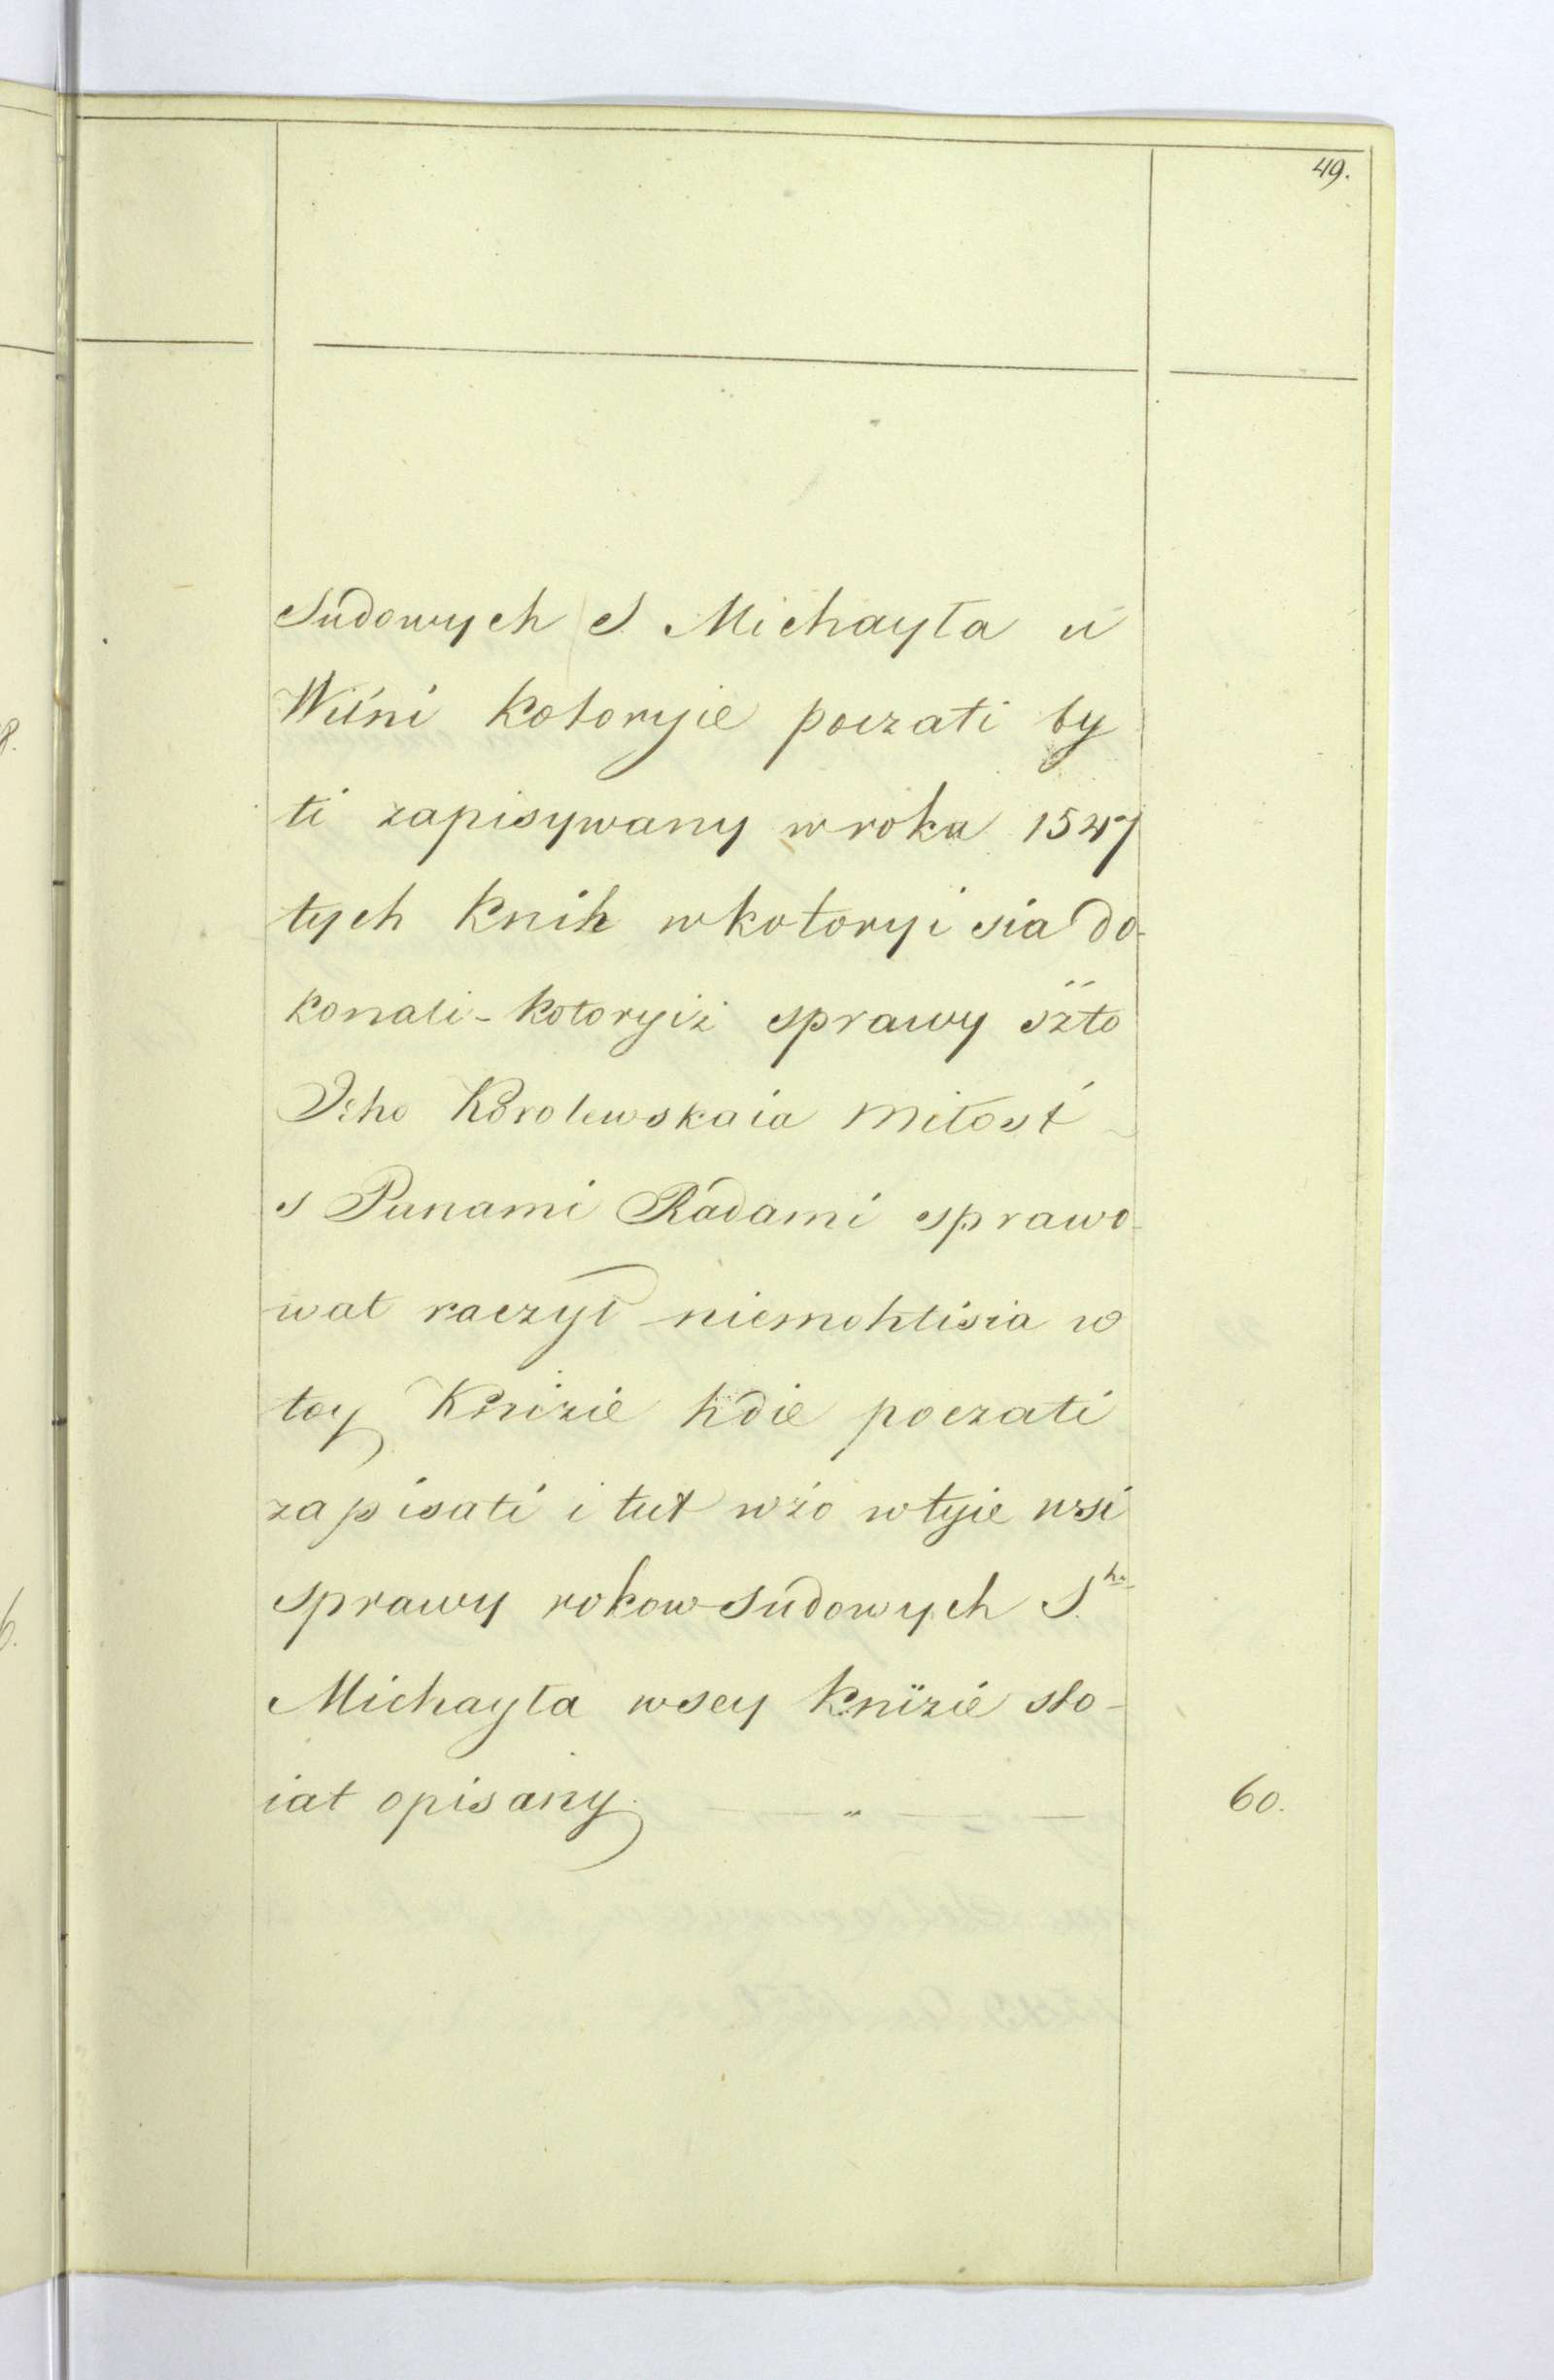 49.
Sudowych S. Michayła u
Wilni kotoryie poczati by
ti zapisywany w roku 1547
tych knih w kotoryi sia do-
konali - kotoryiż sprawy szto
Jeho Korolewskaia miłost
s Panami Radami sprawo-
wat raczył niemohlisia w
toy Knizie hdie poczati
zapisati i tut wżo w tyie wsi
sprawy rokow Sudowych S.ho
Michayła w sey knizie sto-
iat opisany. — " — 60.